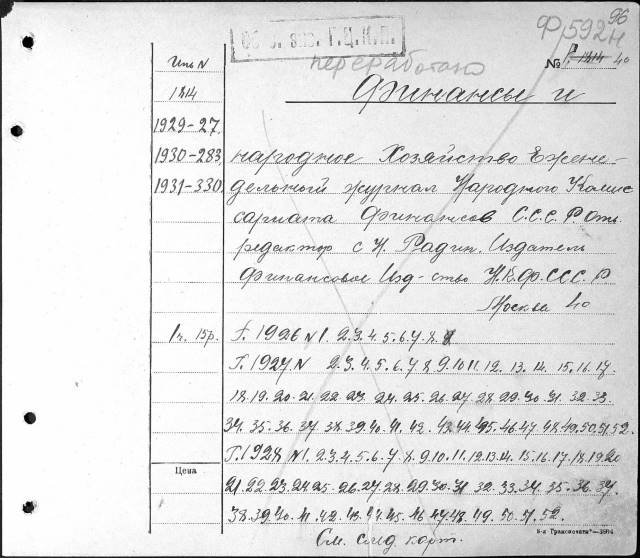 96
Ф 592 н
Об. Г.Ц.К.П.
переработано
№ Р. 1814 40
Инв N
1814
1929-27.
1930-283,
1931-330.
Финансы и
народное Хозяйство Ежене-
дельный журнал Народного Комис
сариата Финансов С.С.С.Р Отв.
редактор с Н. Радин. Издатель
Финансовое Изд-ство Н.К.Ф.СССР
Москва 40
1 ч. 15р.
Г. 1926 N 1. 2.3.4.5.6.7.8.
Г. 1927 N 2.3.4.5.6.7.8.9.10.11.12. 13. 14. 15.16.17
18.19.20.21.22.23 24.25.26.27 28.29.30 31 32.33
34.35.36.37 38.39.40.41.42. 43.44.45.46.47.48.49.50.51.52.
Г.1928 N1.2.3.4.5.6.7.8.9.10.11.12.13.14.15.16.17.18.19.20
21.22.23.24.25.26.27.28.29.30.31 32.33.34.35.36.37
38.39.40.41.42.43.44.45.46.47.48.49.50.51.52.
Цена
См. след карт.